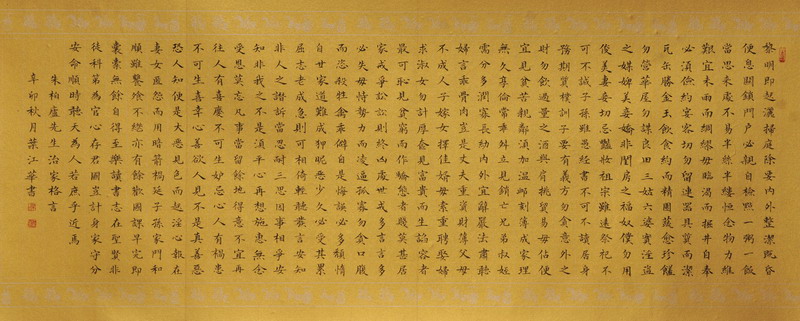 黎明即起灑掃庭除要內外整潔既昏
便息關鎖門戶必親自檢點一粥一飯
當思來處不易半絲半縷恒念物力維
艱宜未雨而綢繆毋臨渴而掘井自奉
必須儉約宴客切勿留連器具質而潔
瓦缶勝金玉飲食約而精園蔬愈珍饈
勿營華屋勿謀良田三姑六婆實淫盜
之媒婢美妾嬌非閨房之福奴僕勿用
俊美妻妾切忌艷妝祖宗雖遠祭祀不
可不誠子孫雖愚經書不可不讀居身
務期質樸訓子要有義方勿貪意外之
財勿飲過量之酒與肩挑貿易毋佔便
宜見貧苦親鄰須加溫卹刻薄成家理
無久享倫常乖舛立見銷亡兄弟叔姪
需分多潤寡長幼內外宜辭嚴法肅聽
婦言乖骨肉豈是丈夫重資財薄父母
不成人子嫁女擇佳婿毋索重聘娶婦
求淑女勿計厚奩見富貴而生諂容者
最可恥見貧窮而作驕態者賤莫甚居
家戒爭訟訟則終凶處世戒多言言多
必失毋恃勢力而凌逼孤寡勿貪口腹
而恣殺牲禽乖僻自是悔誤必多頹惰
自甘家道難成狎昵惡少久必受其累
屈志老成急則可相倚輕聽發言安知
非人之譖訴當忍耐三思因事相爭安
知非我之不是須平心再想施惠無念
受恩莫忘凡事當留餘地得意不宜再
往人有喜慶不可生妒忌心人有禍患
不可生喜幸心善欲人見不是真善惡
恐人知便是大惡見色而起淫心報在
妻女匿怨而用暗箭禍延子孫家門和
順雖饔飧不繼亦有餘歡國課早完即
囊橐無餘自得至樂讀書志在聖賢非
徒科第為官心存君國豈計身家守分
安命順時聽天為人若此庶乎近焉
朱柏廬先生治家格言
辛卯秋月葉江華書